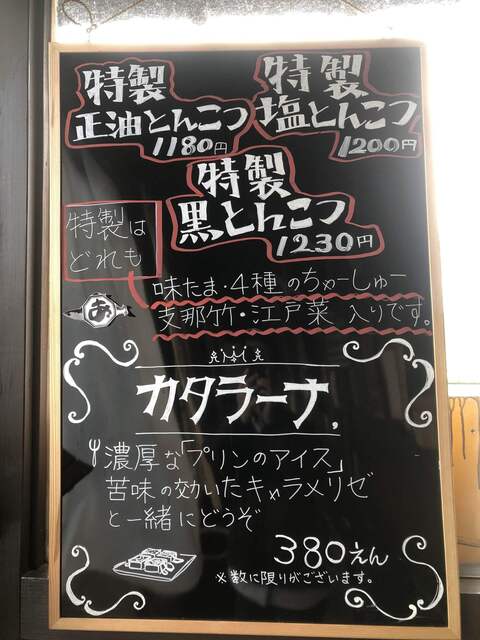 特製
正油とんこつ
1180円
特製
塩とんこつ
1200円
特製
黒とんこつ
1230円
特製は
どれも
味たま・4種のちゃーしゅー
支那竹・江戸菜入りです。
カタラーナ,
濃厚な「プリンのアイス」
苦味の効いたキャラメリゼ
と一緒にどうぞ
380えん
※数に限りがございます。